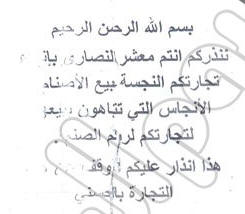 بسم الله الرحمن الرحيم
ننذركم انتم معشر النصارى
تجارتكم النجسة ببيع الأصنام
الأنجاس التي تتباهون
لتجارتكم لروم
هذا انذار عليكم
التجارة بالحسنى